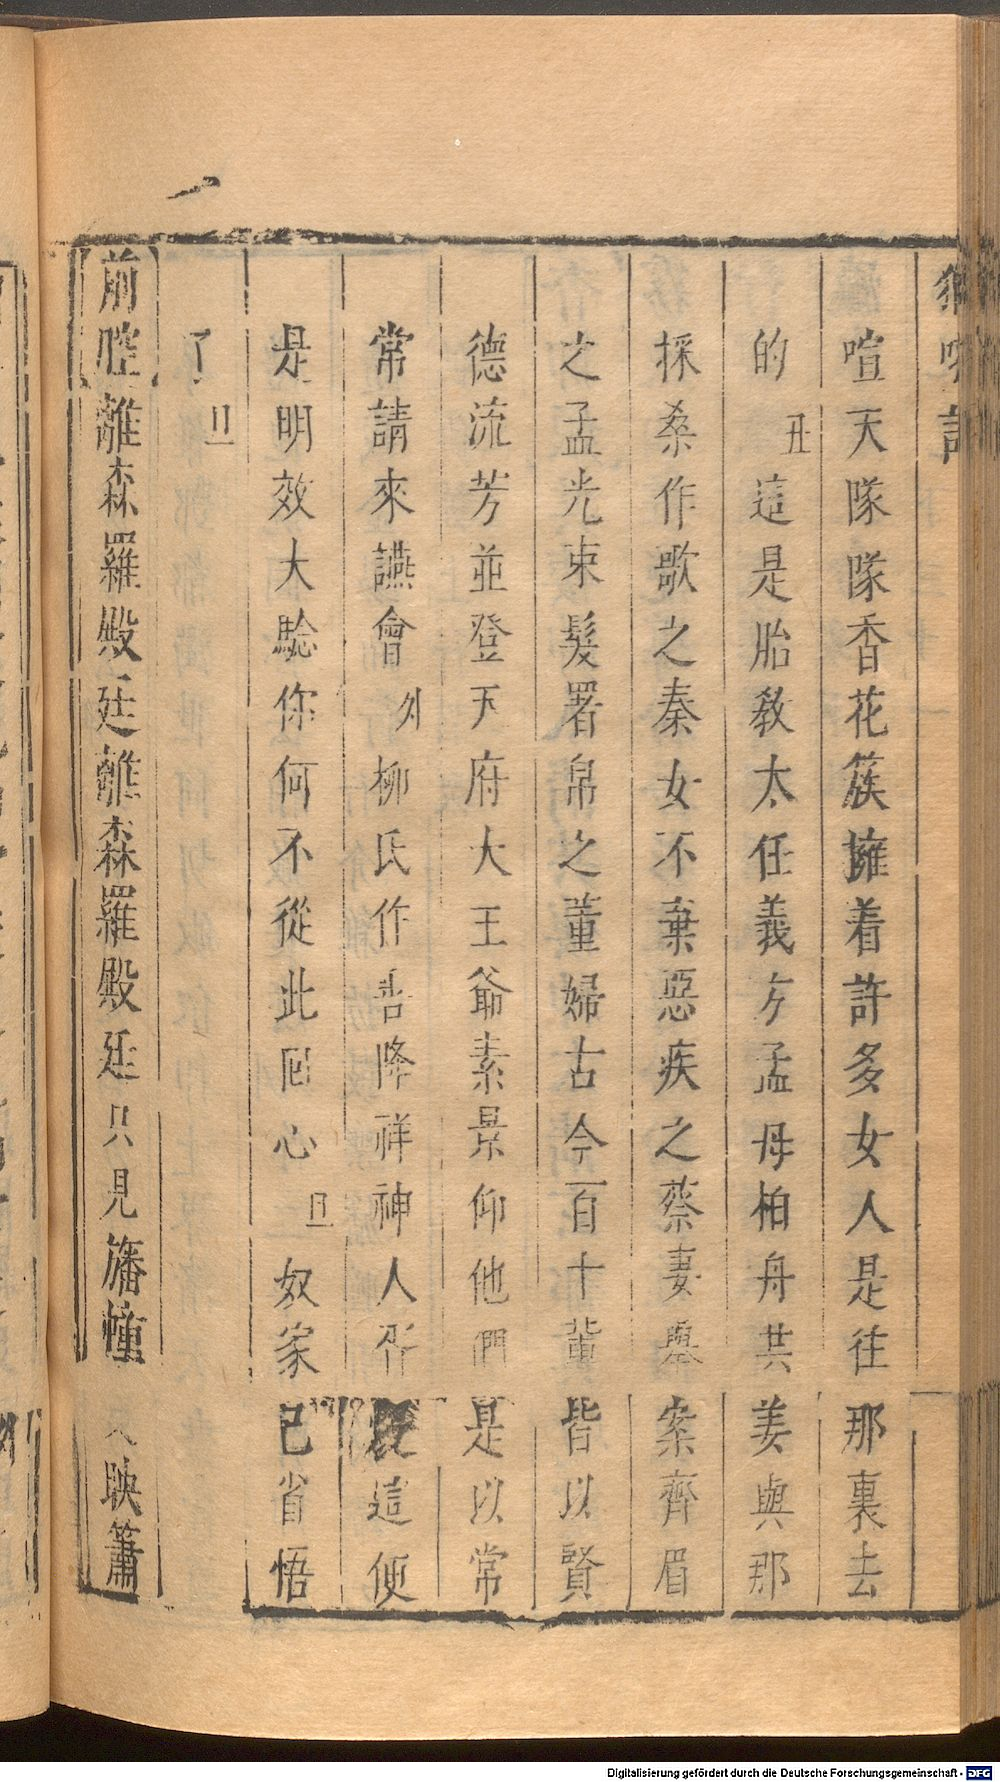 喧天隊隊香花簇擁着許多女人是往那裏去
的丑這是胎教太任義方孟母柏舟共姜與那
採桑作歌之秦女不棄惡疾之蔡妻舉案齊眉
之孟光束髮署帛之董婦古今百十輩皆以賢
德流芳並登天府大王爺素景仰他們是以常
常請來讌會外柳氏作善降祥神人所這便
是明效大驗你何不從此回心旦奴家已省悟
了旦
前腔離森羅殿廷離森羅殿廷只見旛幢映簫
Digitalisierung gefördert durch die Deutsche Forschungsgemeinschaft - DFG